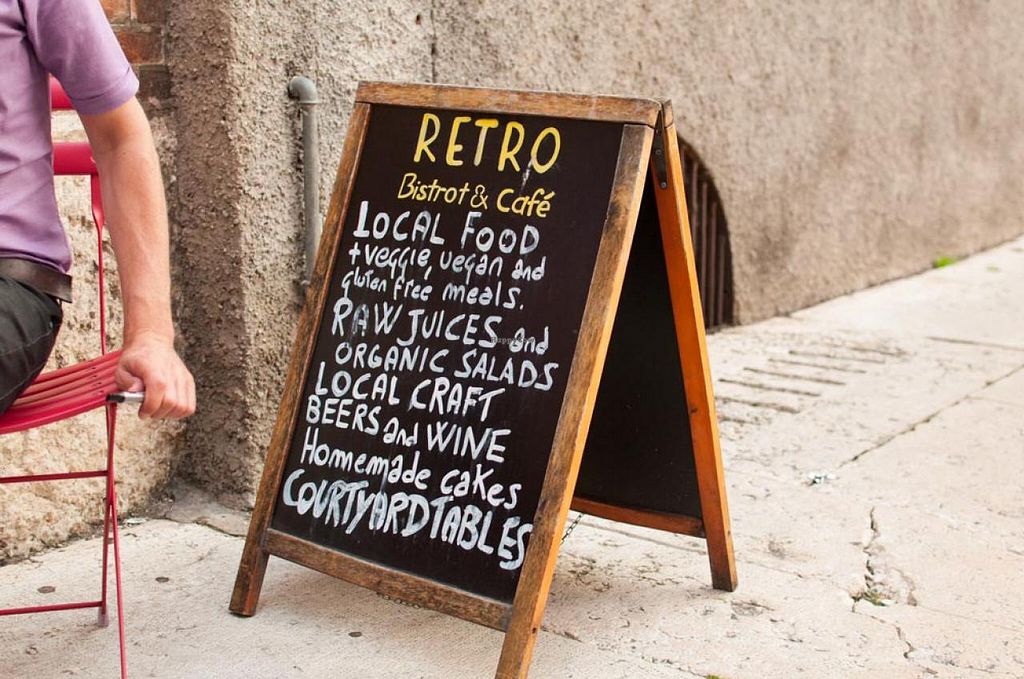 RETRO
Bistrot & Café
LOCAL FOOD
+ veggie, vegan and
gluten free meals.
RAW JUICES and
ORGANIC SALADS
LOCAL CRAFT
BEERS and WINE
Hommemade cakes
COURTYARD TABLES